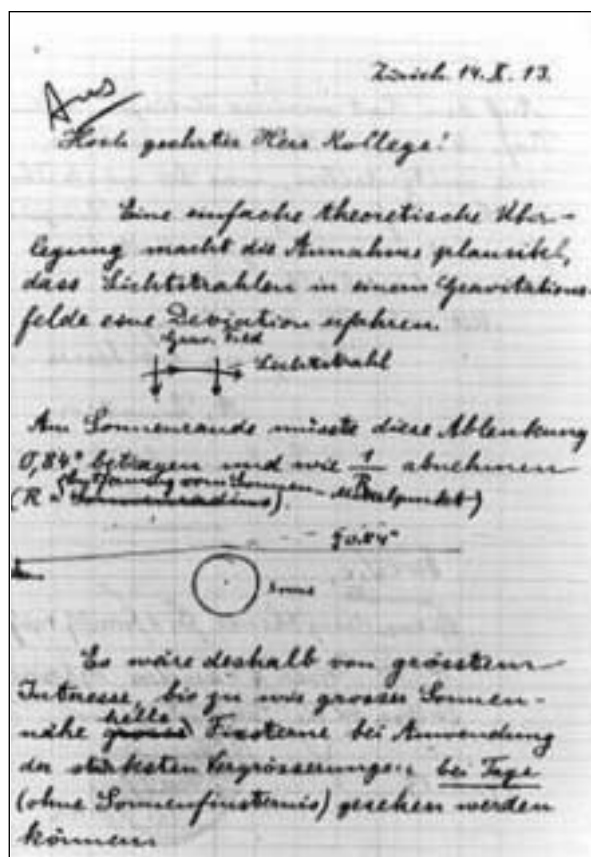 Zürich. 14. X. 13.
Hoch geehrter Herr Kollege!
Eine einfache theoretische Über-
legung macht die Annahme plausibel,
dass Lichtstrahlen in einem Gravitations-
felde eine Deviation erfahren.
Grav. Feld
Lichtstrahl
Am Sonnenrande müsste diese Ablenkung
0,84" betragen und wie 1/R abnehmen
(Entfernung vom Sonnen-Mittelpunkt)
(R = Sonnenradius).
0.84"
Sonne
Es wäre deshalb von grösstem
Interesse, bis zu wie grosser Sonnen-
helle
nähe grosse Fixsterne bei Anwendung
der stärksten Vergrösserungen bei Tage
(ohne Sonnenfinsternis) gesehen werden
können.